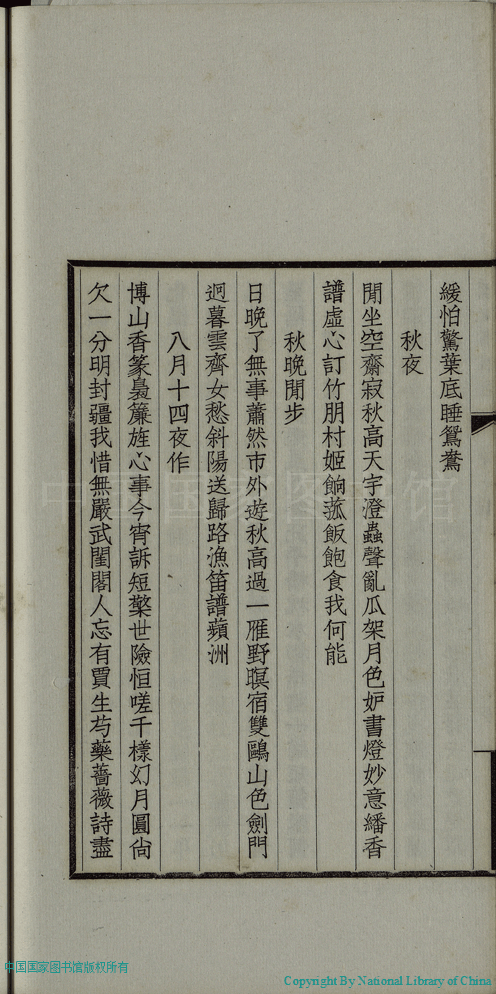 緩怕驚葉底睡鴛鴦
秋夜
閒坐空齋寂秋高天宇澄蟲聲亂瓜架月色妒書燈妙意繙香
譜虛心訂竹朋村姬餉菰飯飽食我何能
秋晚閒步
日晚了無事蕭然市外遊秋高過一雁野暝宿雙鷗山色劍門
迥暮雲齊女愁斜陽送歸路漁笛譜蘋洲
八月十四夜作
博山香篆裊簾旌心事今宵訴短檠世險恒嗟千樣幻月圓尙
欠一分明封疆我惜無嚴武閨閣人忘有賈生芍藥薔薇詩盡
中国国家图书馆
中国国家图书馆版权所有
Copyright By National Library of China